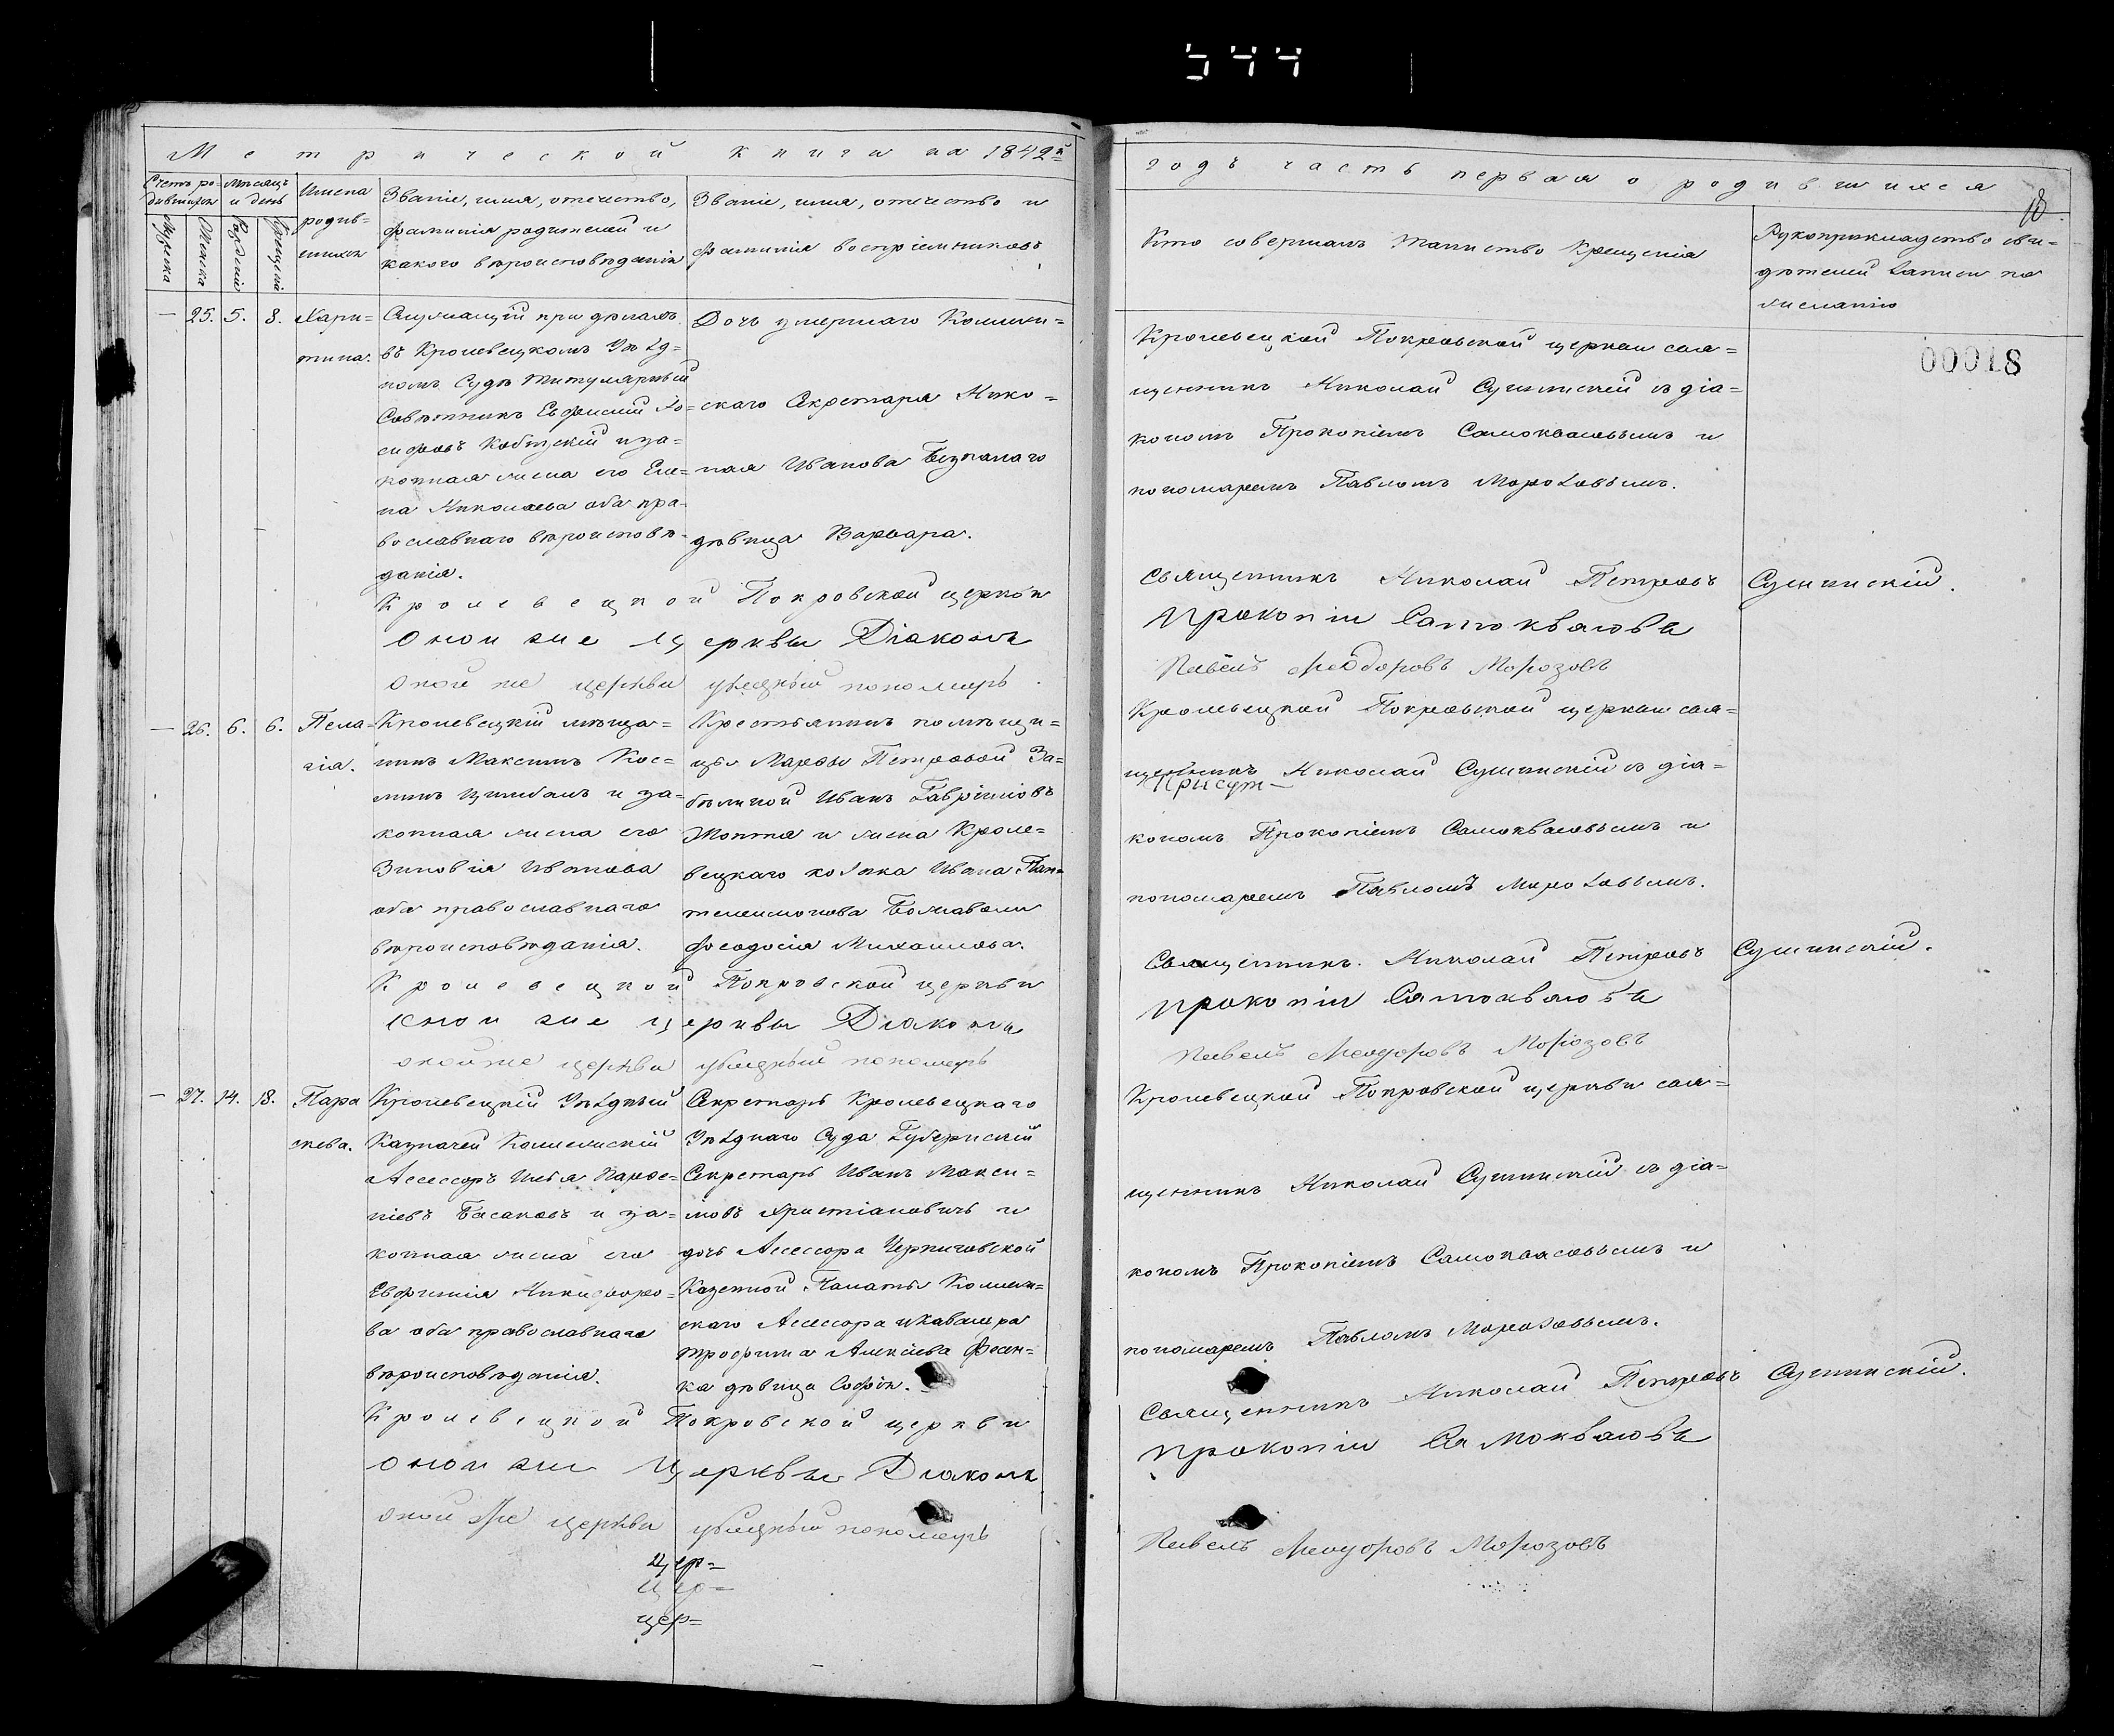 544
Метрической книги на 1842й
годъ часть первая о родившихся
18.
00018
Счетъ ро-
дившихся
Мѣсяцъ
и день
Мужеска
Женска
Рожденія
Крещенія
Имена
родив-
шихся
Званіе, имя, отечество,
фамилія родителей и
какого вѣроисповѣданія
Званіе, имя, отечество и
фамилія воспріемниковъ
Кто совершалъ таинство крещенія
Рукоприкладство сви-
дѣтелей записи по
желанію
— 25. 5. 8.
Хари-
тина.
Служащій при дѣлахъ
въ Кролевецкомъ Уѣзд-
номъ Судѣ Титулярный
Совѣтникъ Евфимій Іо-
сифовъ и за-
конная жена его Еле-
на Николаева оба пра-
вославнаго вѣроисповѣ-
данія.
Дочь умершаго Коллежи-
скаго Секретаря Нико-
лая Иванова
дѣвица Варвара.
Кролевецкой Покровской церкви свя-
щенникъ Николай Сушинскій съ діа-
кономъ Прокопіемъ Самоквасовымъ и
пономаремъ Павломъ Морозовымъ.
Кролевецкой Покровской церкви
священникъ Николай Петровъ Сушинскій.
Оной же церквы Діаконъ
Прокопій Самоквасовъ
оной же церкви уѣздный пономарь
Павелъ Феодоровъ Морозовъ
— 26. 6. 6.
Пела-
гія.
Кролевецкій мѣща-
нинъ Максимъ Кос-
минъ Цимбалъ и за-
конная жена его
Зиновія Иванова
оба православнаго
вѣроисповѣданія.
Крестьянинъ помѣщи-
цы Марфы Петровой За-
бѣлиной Иванъ Гавриловъ
и жена Кроле-
вецкаго козака Ивана Пан-
телеимонова
Феодосія Михайлова.
Кролевецкой Покровской церкви свя-
щенникъ Николай Сушинскій съ діа-
Присут-
кономъ Прокопіемъ Самоквасовымъ и
пономаремъ Павломъ Морозовымъ.
Кролевецкой Покровской церкви
Священникъ. Николай Петровъ Сушинскій.
оной же церквы Діаконъ
Прокопій Самоквасовъ
оной же церкви уѣздный пономарь
Павелъ Феодоровъ Морозовъ
— 27. 14. 18.
Пара
скева.
Кролевецкій Уѣздный
Казначей Коллежскій
Асессоръ Илья Карпо-
віевъ Басаковъ и за-
конная жена его
Евфимія Никифоро-
ва оба православнаго
вѣроисповѣданія.
Секретарь Кролевецкаго
Уѣзднаго Суда Губернскій
Секретарь Иванъ Макси-
мовъ Христіановичъ и
дочь Асессора Черниговской
Казенной Палаты Коллеж-
скаго Асессора и Кавалера
Трофима Алексіева Фесен-
ка дѣвица Софія.
Кролевецкой Покровской церкви свя-
щенникъ Николай Сушинскій съ діа-
кономъ Прокопіемъ Самоквасовымъ и
пономаремъ Павломъ Морозовымъ.
Кролевецкой Покровской церкви
Священникъ Николай Петровъ Сушинскій.
оной же Церквы Діаконъ
Прокопій Самоквасовъ
оной же церкви уѣздный пономарь
Павелъ Феодоровъ Морозовъ
Цер-
цер-
цер-